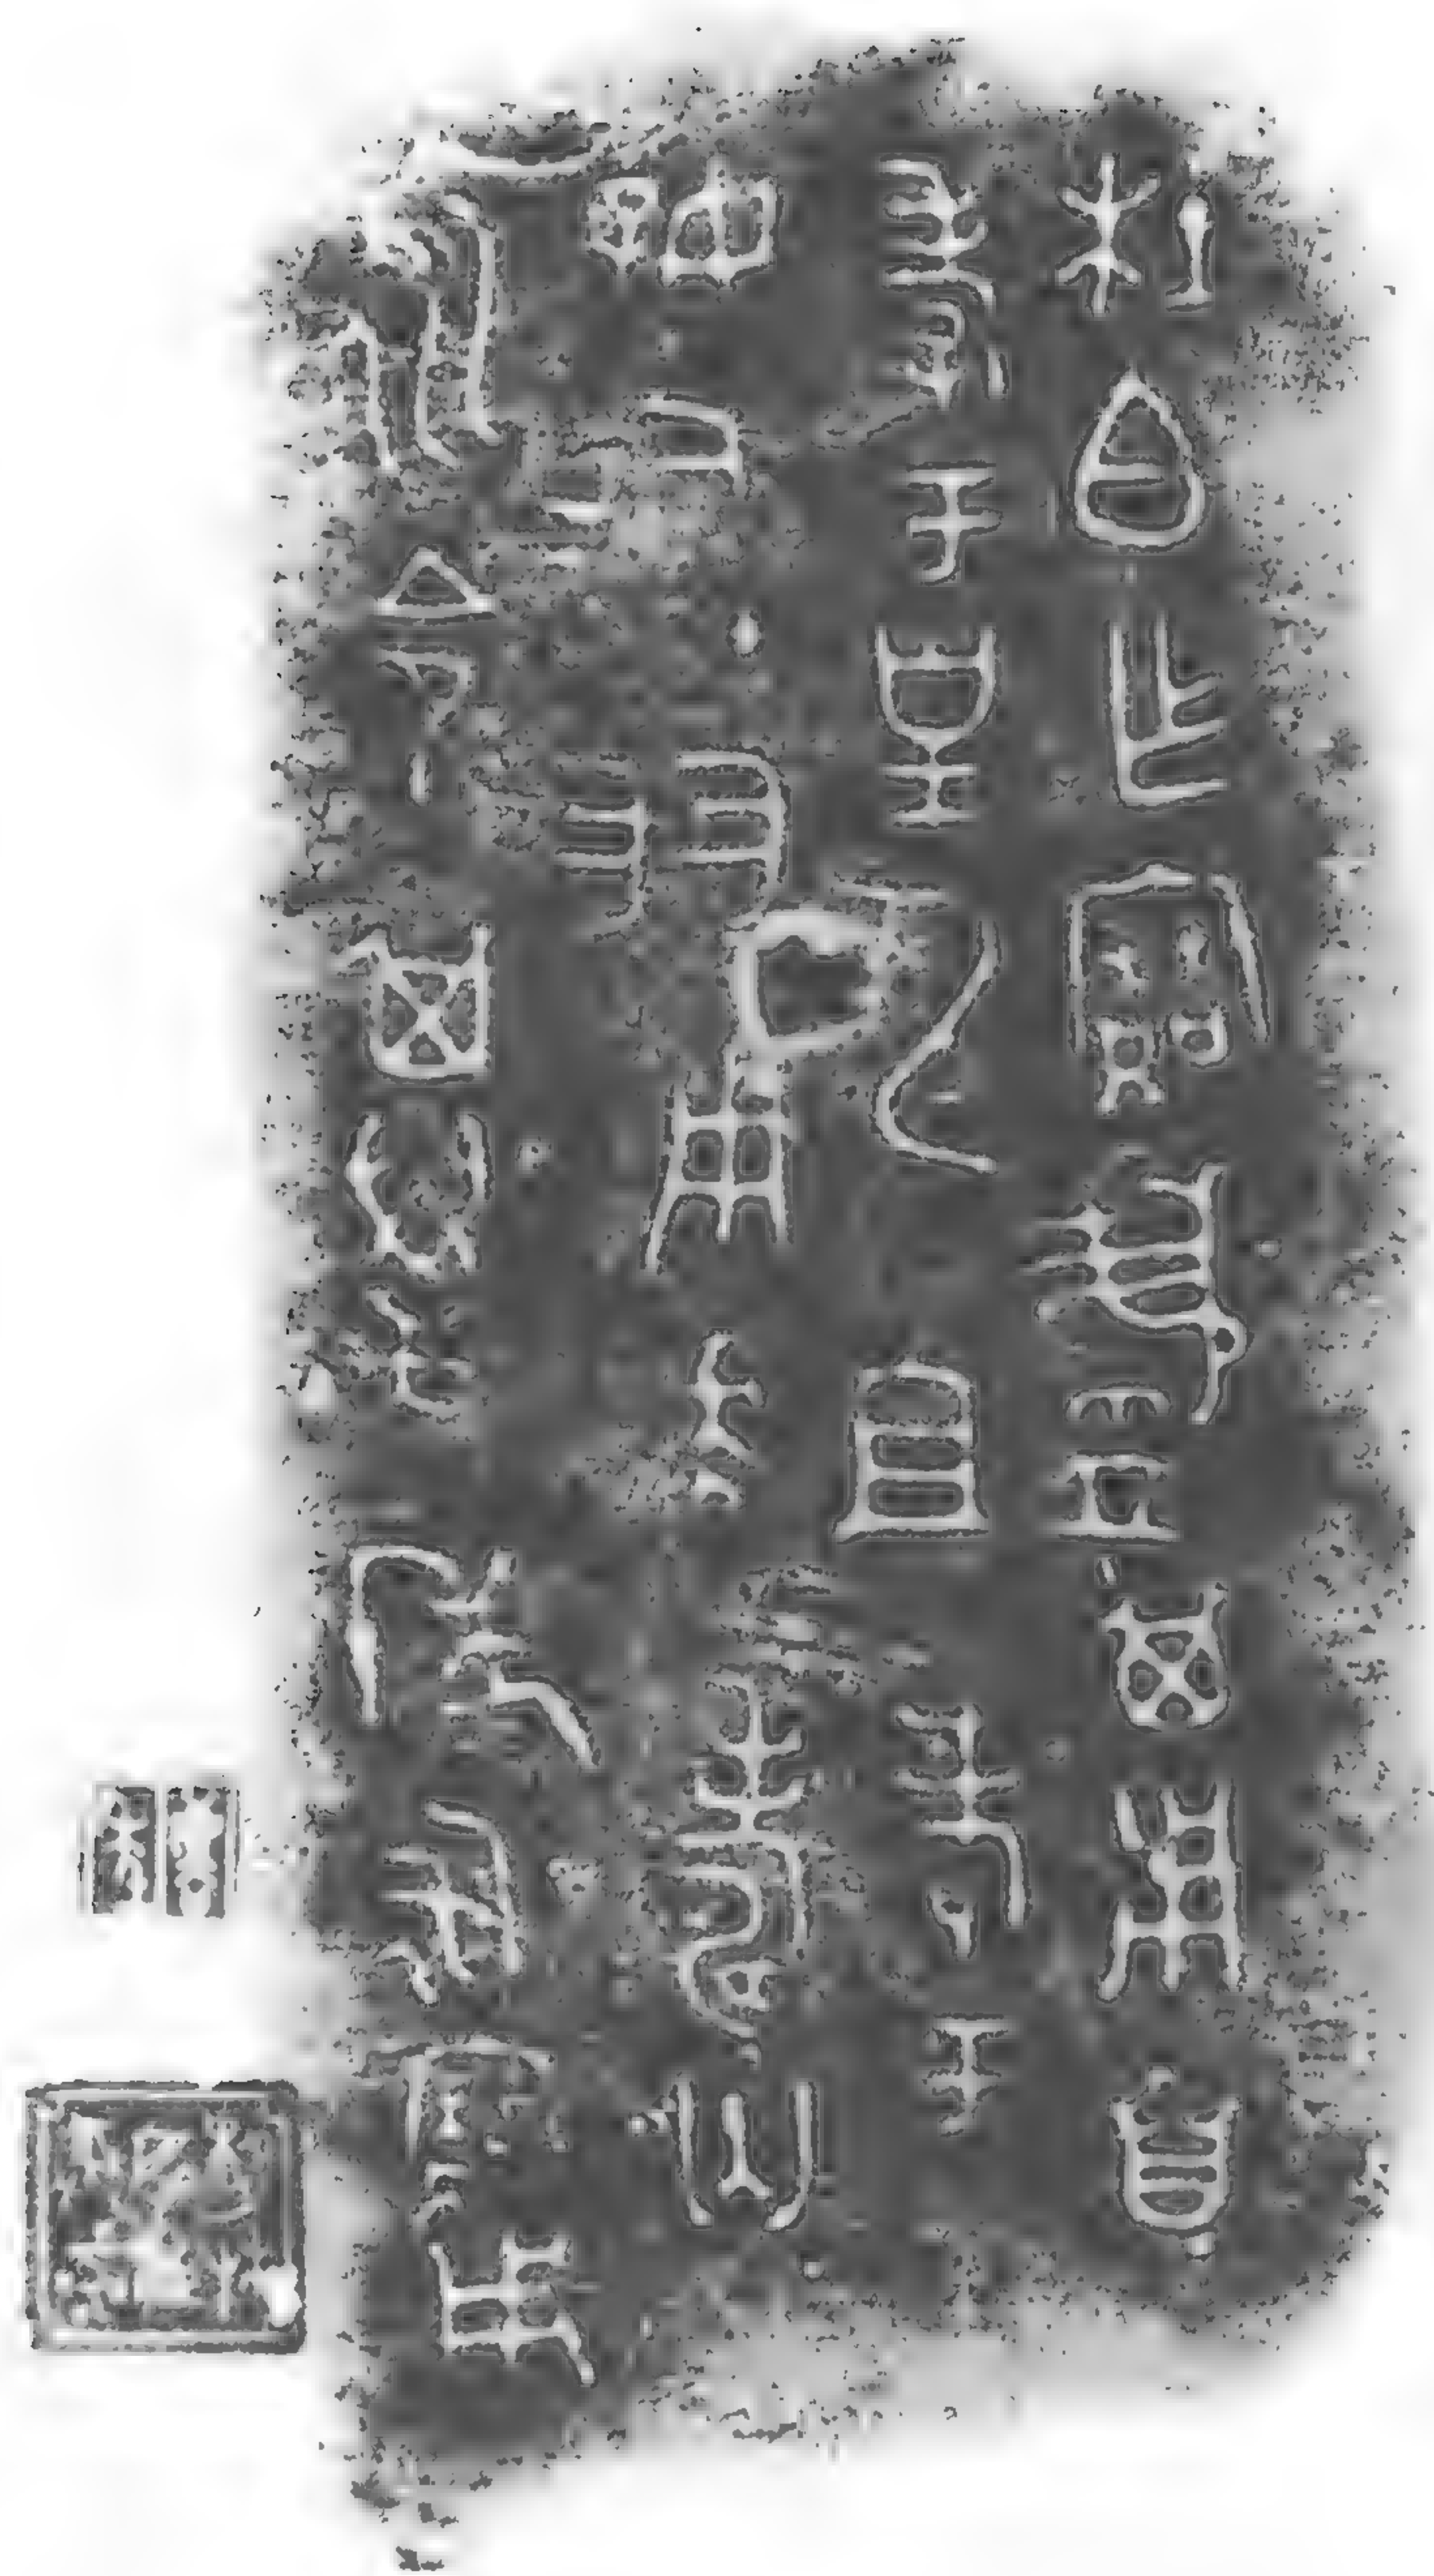 杜白乍寶盨其用亯
孝于皇申且考于
好倗友用𠦪壽匄
永令其萬年永寶用